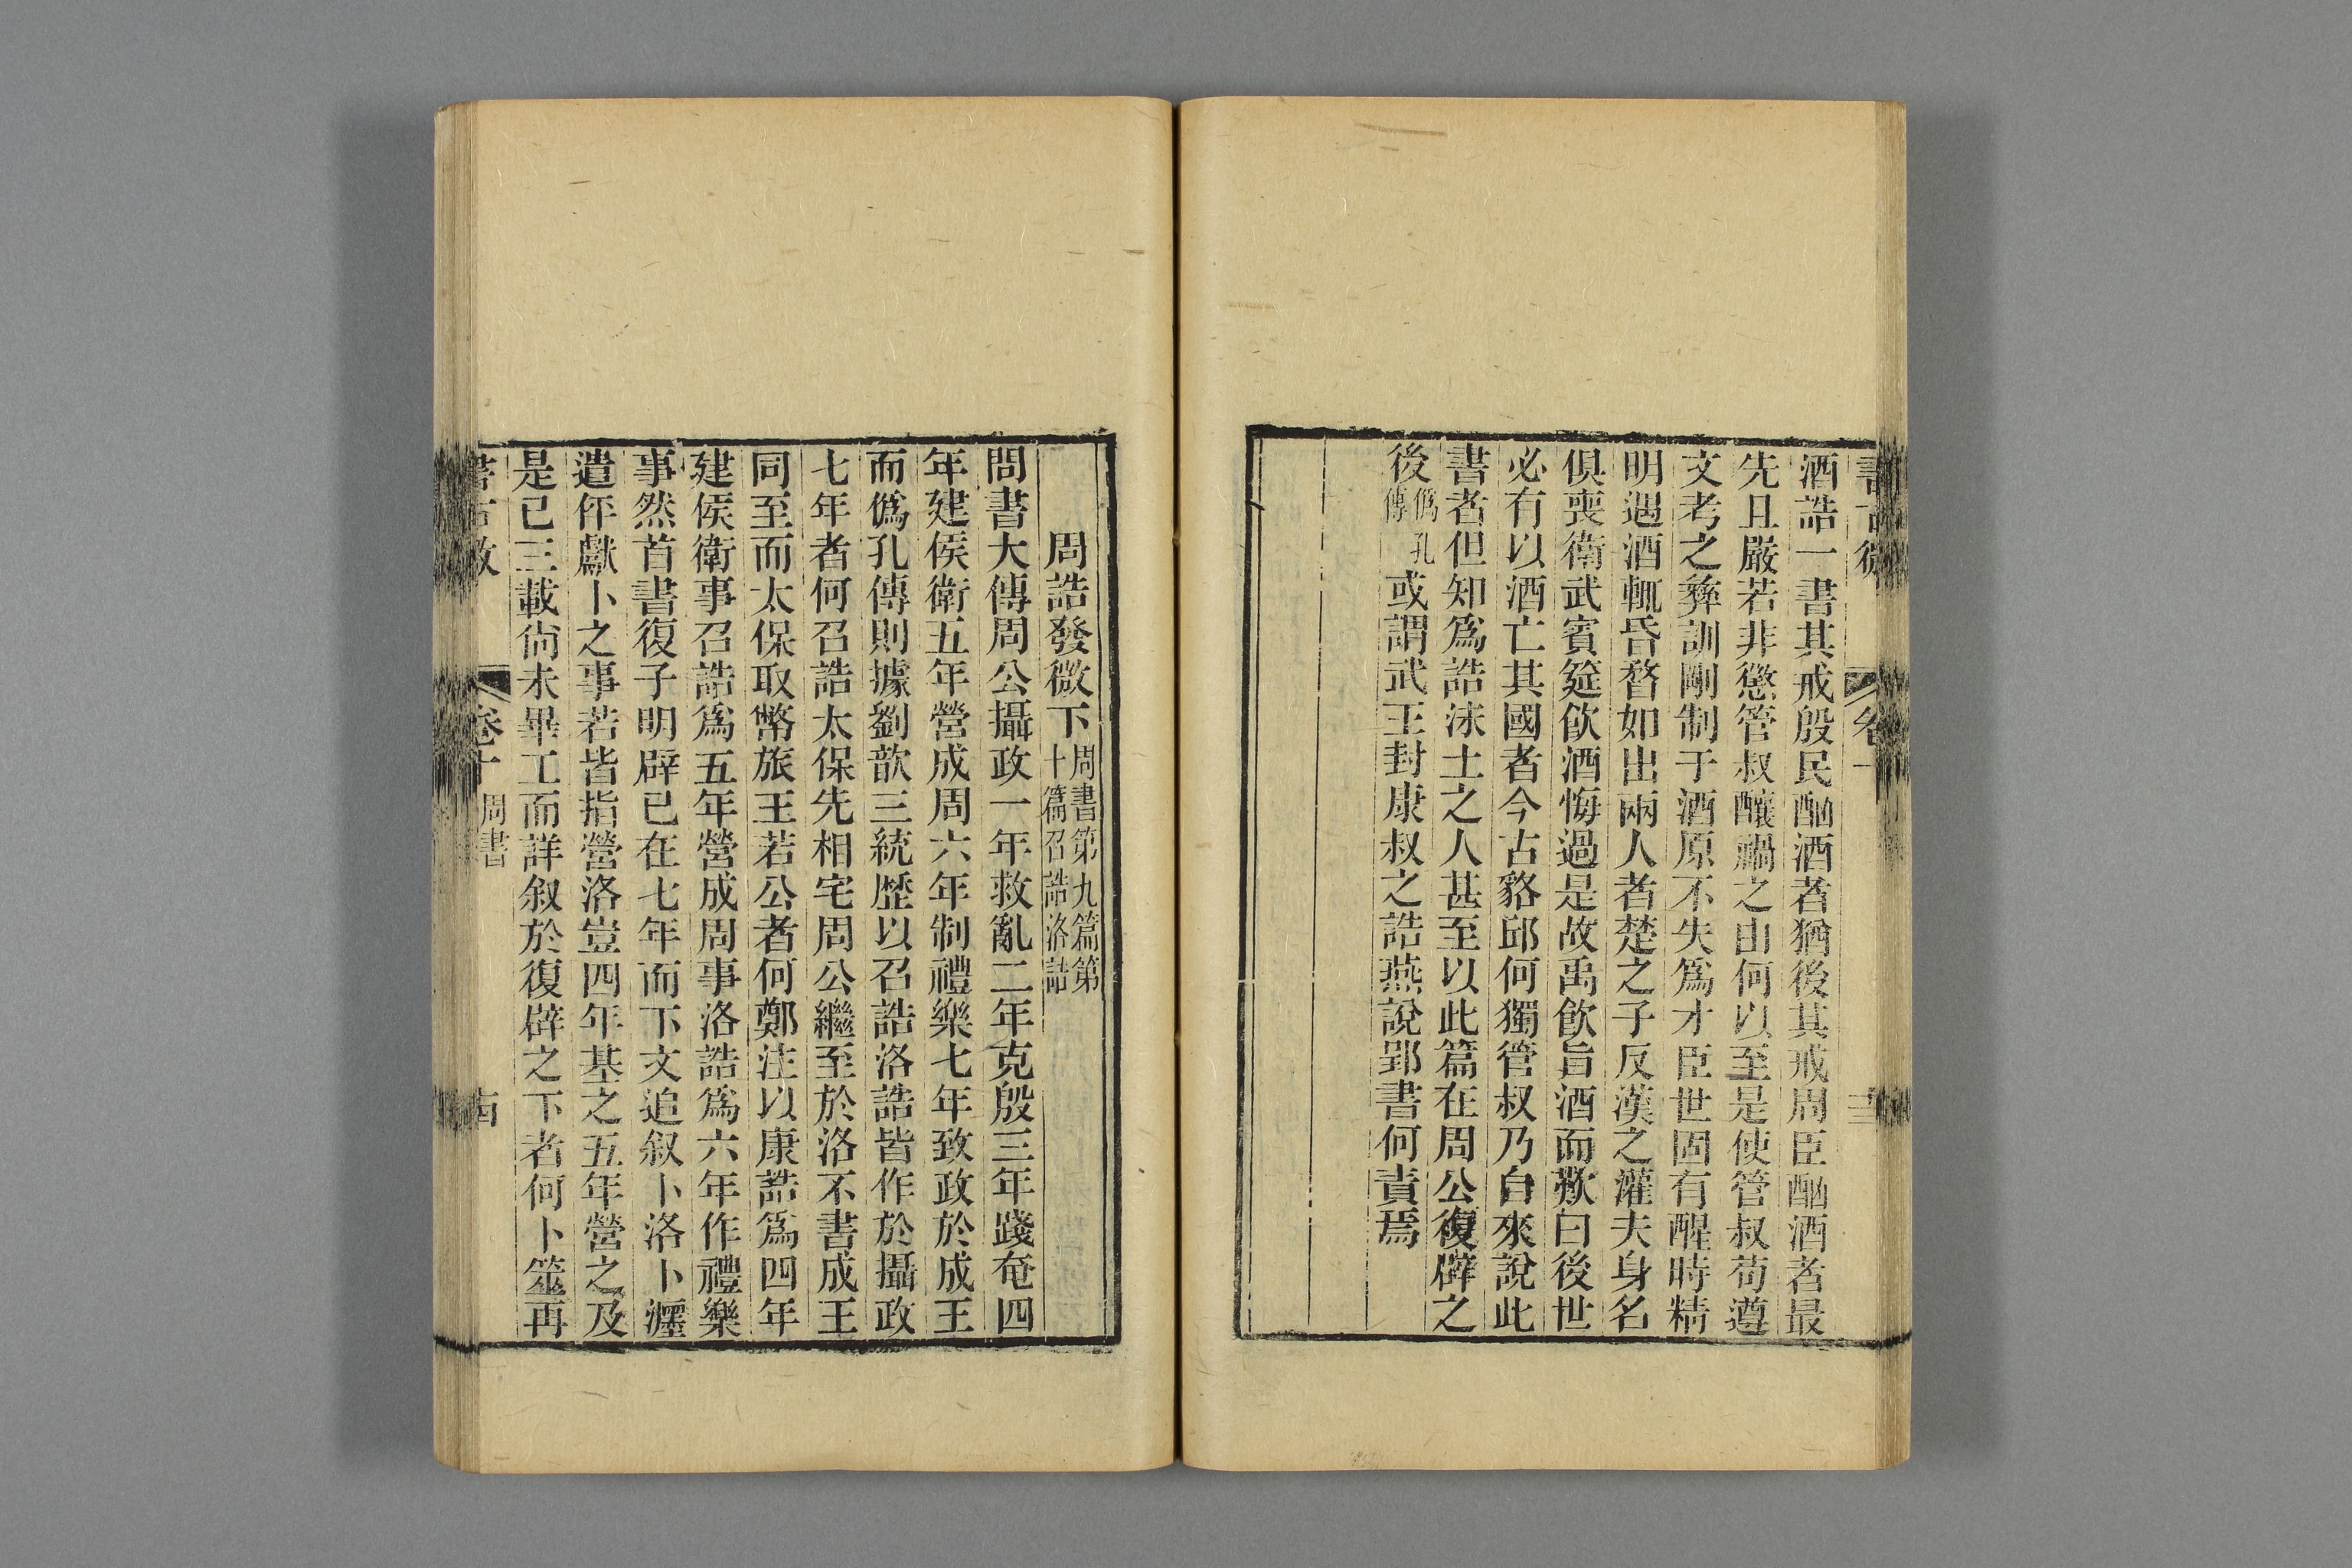 書古微
卷十
酒誥一書其戒殷民酗酒者猶後其戒周臣酗酒者最
先且嚴若非懲管叔釀禍之由何以至是使管叔苟遵
文考之彝訓剛制于酒原不失爲才臣世固有醒時精
明遇酒輒昏瞀如出兩人者楚之子反漢之灌夫身名
俱喪衛武賓筵飲酒悔過是故禹飲旨酒而歎曰後世
必有以酒亡其國者今古貉邱何獨管叔乃自來說此
書者但知爲誥沬土之人甚至以此篇在周公復辟之
後僞孔傳或謂武王封康叔之誥燕說郢書何責焉
周誥發微下周書第九篇第十篇召誥洛誥
問書大傳周公攝政一年救亂二年克殷三年踐奄四
年建侯衛五年營成周六年制禮樂七年致政於成王
而僞孔傳則據劉歆三統歷以召誥洛誥皆作於攝政
七年者何召誥太保先相宅周公繼至於洛不書成王
同至而太保取幣旅王若公者何鄭注以康誥爲四年
建侯衛事召誥爲五年營成周事洛誥爲六年作禮樂
事然首書復子明辟已在七年而下文追叙卜洛卜瀍
遣伻獻卜之事若皆指營洛豈四年基之五年營之及
是已三載尙未畢工而詳叙於復辟之下者何卜筮再
書古微
卷十
周書